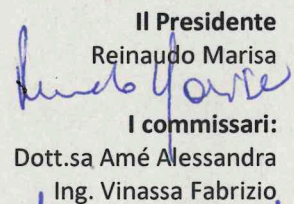 Il Presidente
Reinaudo Marisa
Reinaudo Marisa
I commissari:
Dott.sa Amé Alessandra
Ing. Vinassa Fabrizio